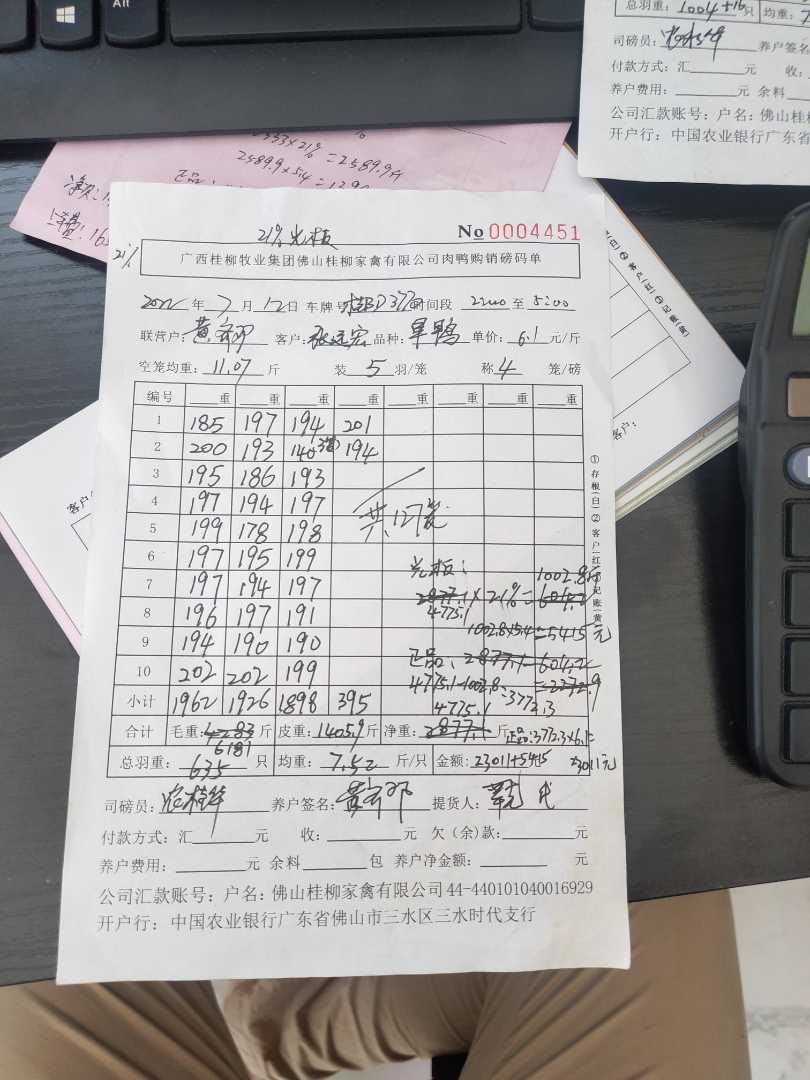 Alt
总羽重: 1004+16 只 均重: 7
司磅员: 养户签名
付款方式: 汇 元 收:
养户费用: 元 余料
公司汇款账号: 户名: 佛山桂柳
开户行: 中国农业银行广东省
×21% =2589.9斤
2589.9×5.4 =
正品:
净重:
客户:
21%光板
№0004451
21%
广西桂柳牧业集团佛山桂柳家禽有限公司肉鸭购销磅码单
2022 年 7 月 12 日 车牌号 桂BD377 时间段 2:00 至 5:00
联营户: 黄 客户: 张远宏 品种: 旱鸭 单价: 6.1 元/斤
空笼均重: 11.07 斤 装 5 羽/笼 称 4 笼/磅
编号 重 重 重 重 重 重 重 重
1 185 197 194 201
2 200 193 140 3笼 194
3 195 186 193
4 197 194 197
5 199 178 198 共127笼
6 197 195 199
7 197 194 197
8 196 197 191
9 194 190 190
10 202 202 199
小计 1962 1926 1898 395
光板: 1002.8斤
2877.1×21%=604.2
4775.1
1002.8×5.4=5415元
正品: 2877.1-604.2
4775.1-1002.8 =2272.9
=3772.3
4775.1
合计 毛重: 4283 斤 皮重: 1405.9 斤 净重: 2877.1 斤 正品:3772.3×6.1=
6181
总羽重: 635 只 均重: 7.52 斤/只 金额: 23011+5415 23011元
司磅员: 农桂华 养户签名: 黄 提货人:
付款方式: 汇 元 收: 元 欠(余)款: 元
养户费用: 元 余料 包 养户净金额: 元
公司汇款账号: 户名: 佛山桂柳家禽有限公司44-440101040016929
开户行: 中国农业银行广东省佛山市三水区三水时代支行
①存根(白)②客户(红)③记账(黄)